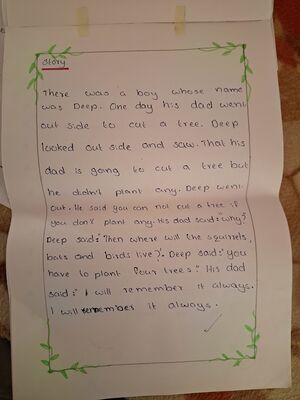 Story
There was a boy whose name
was Deep. One day his dad went
out side to cut a tree. Deep
looked out side and saw. That his
dad is going to cut a tree but
he didn't plant any. Deep went
out. He said you can not cut a tree if
you don't plant any. His dad said:"why?
Deep said:"Then where will the squirrels,
bats and birds live?". Deep said:"you
have to plant four trees." His dad
said:" I will remember it always.
I will remember it always.